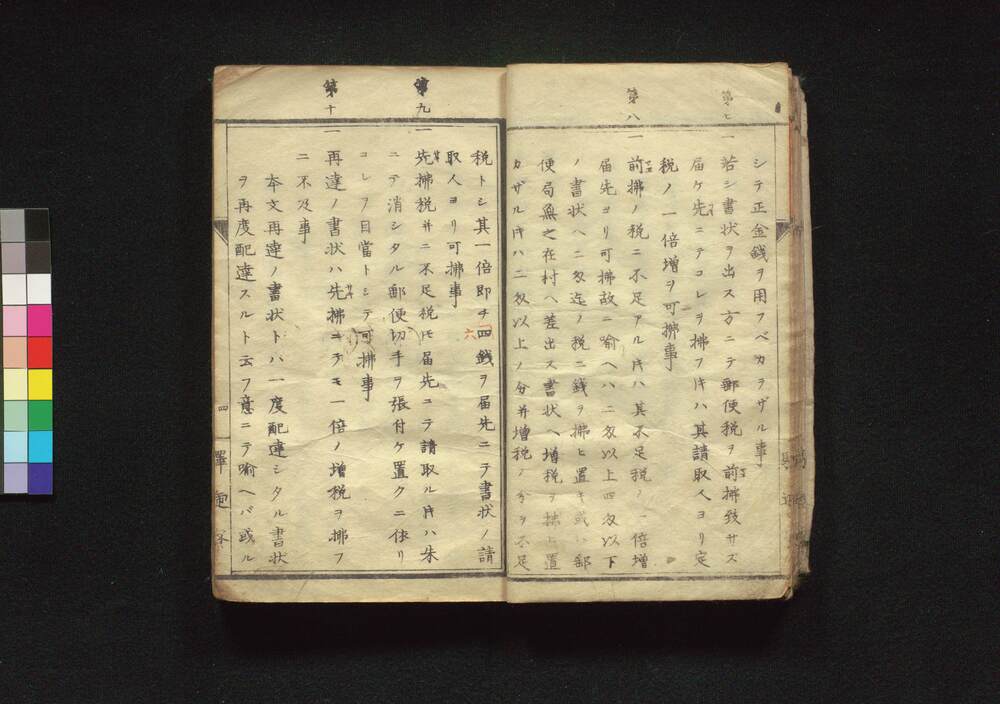 シテ正金銭ヲ用フベカラザル事
第七
一 若シ書状ヲ出ス方ニテ郵便税ヲ前拂致サズ
届ケ先ニテコレヲ拂フ片ハ其請取人ヨリ定
税ノ一倍増ヲ可拂事
第八
一 前拂ノ税ニ不足アル片ハ其不足税ノ一倍増
届先ヨリ可拂故ニ喩ヘハ二匁以上四匁以下
ノ書状ヘ二匁迄ノ税二銭ヲ拂ヒ置キ或ハ郵
便局無之在村ヘ差出ス書状ヘ増税ヲ拂ヒ置
カザル片ハ二匁以上ノ分并増税ノ分ヲ不足
税トシ其一倍即チ四銭ヲ届先ニテ書状ノ請
六
取人ヨリ可拂事
第九
一 先拂税并ニ不足税モ届先ニテ請取ル片ハ朱
ニテ消シタル郵便切手ヲ張付ケ置クニ依リ
コレヲ目當トシテ可拂事
第十
一 再達ノ書状ハ先拂ニテモ一倍ノ増税ヲ拂フ
ニ不及事
本文再達ノ書状トハ一度配達シタル書状
ヲ再度配達スルト云フ意ニテ喩ヘバ或ル
四
驛逓寮